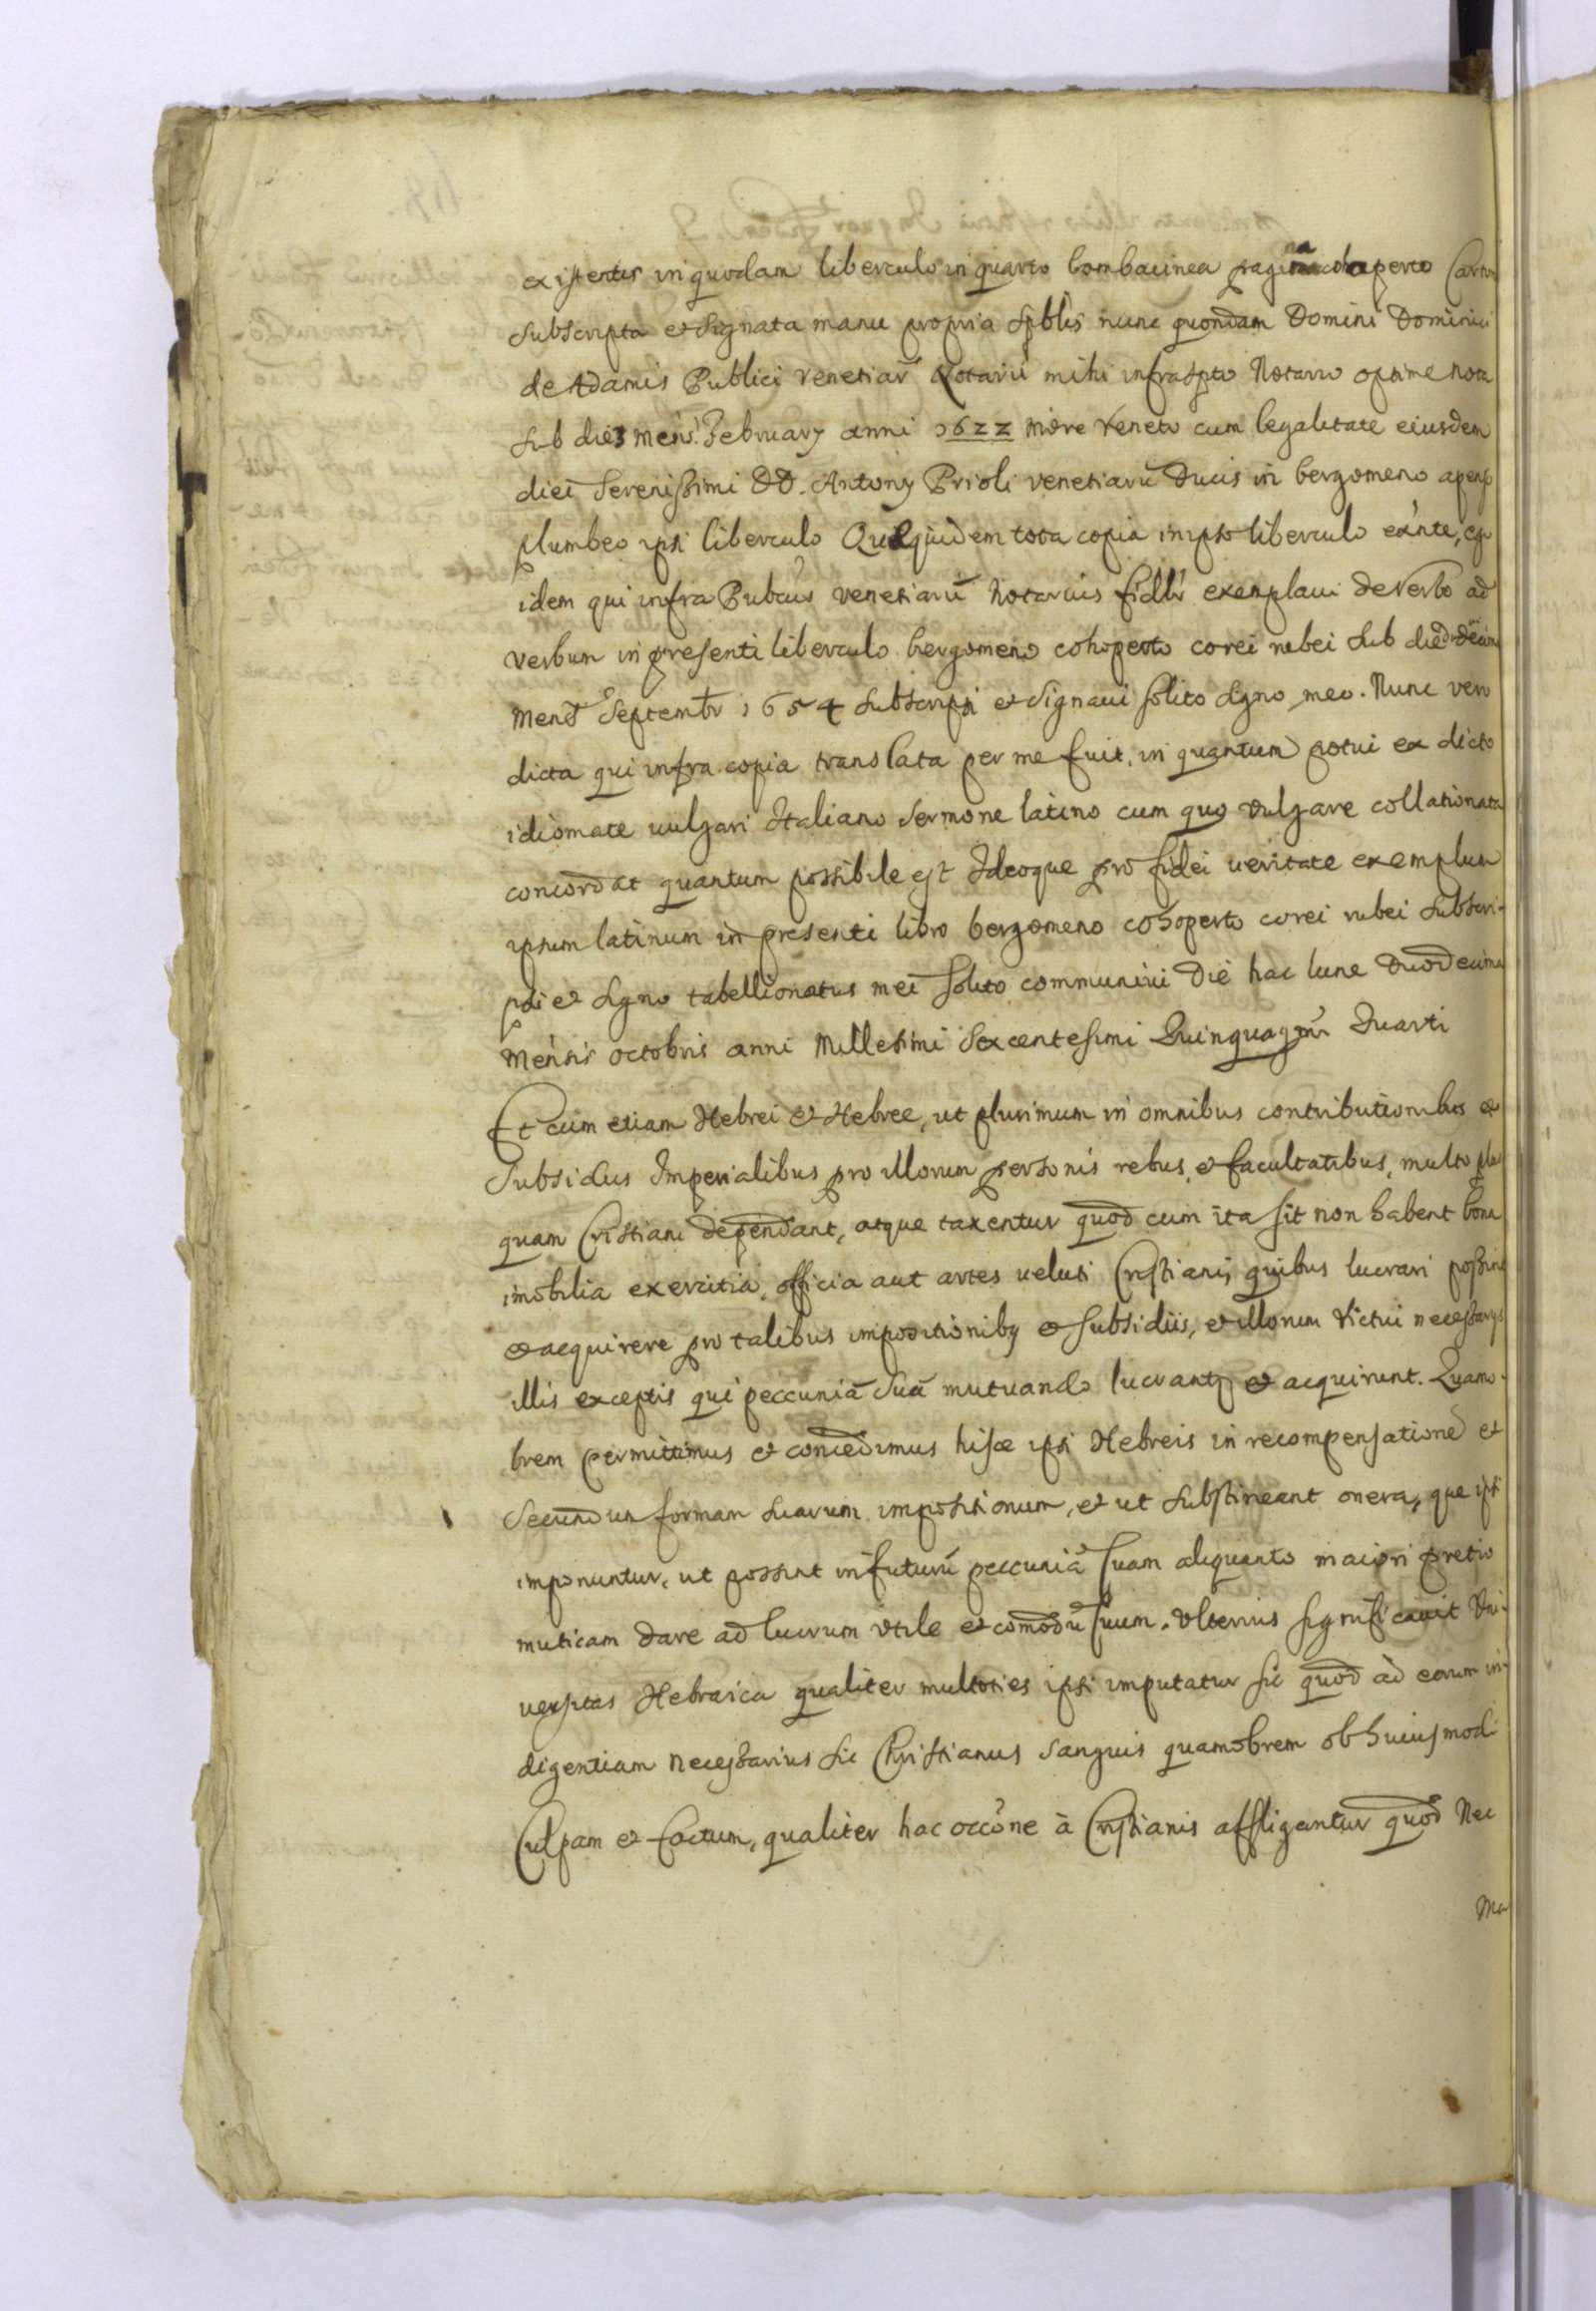 existentis in quodam liberculo in quarto bombacinea pagina cohoperto Carton
subscripta et signata manu propria spblis nunc quondam Domini Dominici
de Adamis Publici Venetiarũ Notarii mihi infraspto Notario optime nota
sub die 3 mens. February anni 1622 more Veneto cum legalitate eiusdem
diei Serenissimi DD. Antony Prioli venetiarũ Ducis in bergomeno apenso
plumbeo ipsi liberculo Que quidem tota copia in ipso liberculo exñte, ego
idem qui infra Pubcus venetiarũ Notarius fidlr exemplaui de verbo ad
verbum in presenti liberculo bergomeno cohoperto corei rubei sub die
Mens Septembr 1654 subscripsi et signaui solito signo meo. Nunc vero
dicta qui infra copia translata per me fuit, in quantum potui ex dicto
idiomate uulgari Italiano sermone latino cum quo vulgare collationata
concordat quantum possibile est Ideoque pro fidei ueritate exemplum
ipsum latinum in presenti libro bergomeno cohoperto corei rubei subscri-
psi et signo tabellionatus mei solito communiui Die hac lune duodecima
Mensis octobris anni Millesimi Sexcentesimi Quinquagmi Quarti
Et cum etiam Hebrei et Hebree, ut plurimum in omnibus contributionibus et
Subsidus Imperialibus pro illorum personis rebus, et facultatibus, multo plus
quam Cristiani dependant, atque taxentur quod cum ita sit non habent bona
imobilia exercitia, officia aut artes veluti Cristiani, quibus lucrari possint
et acquirere pro talibus impositioniby et subsidiis, et illorum victui necessarys
illis exceptis qui peccuniã suã mutuando lucrantr et acquirunt. Quamo-
brem permittimus et concedimus hisce ipsi Hebreis in recompensatione et
Secundum formam suarum impositionum, et ut substineant onera, que ipsi
imponuntur, ut possint in futurũ peccuniã suam aliquanto maiori pretio
muticam dare ad lucrum utile et comodũ suum. Ulterius significauit Uni-
uersitas Hebraica qualiter multoties ipsi imputatur sic quod ad eorum in-
digentiam necessarius sit Christianus sanguis quamobrem ob huiusmodi
Culpam et factum, qualiter hac occone à Cristianis affligantur quod Nec
Ma